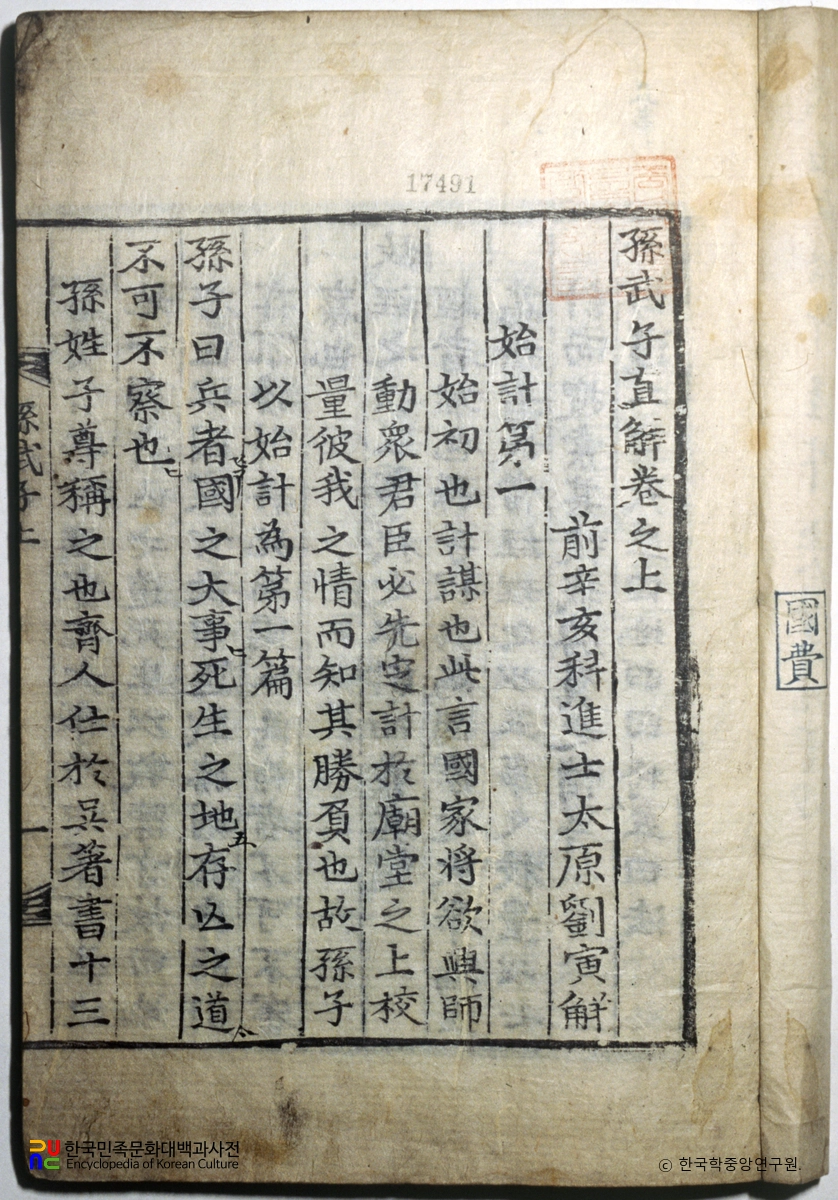 17491
孫武子直解卷之上
前辛亥科進士太原劉寅解
始計第一
始初也計謀也此言國家将欲興師
動衆君臣必先定計於廟堂之上校
量彼我之情而知其勝負也故孫子
以始計為第一篇
孫子曰兵者國之大事死生之地存亾之道
不可不察也
孫姓子尊稱之也齊人仕於吳著書十三
孫武子上
一
國費
한국민족문화대백과사전
Encyclopedia of Korean Culture
ⓒ 한국학중앙연구원.